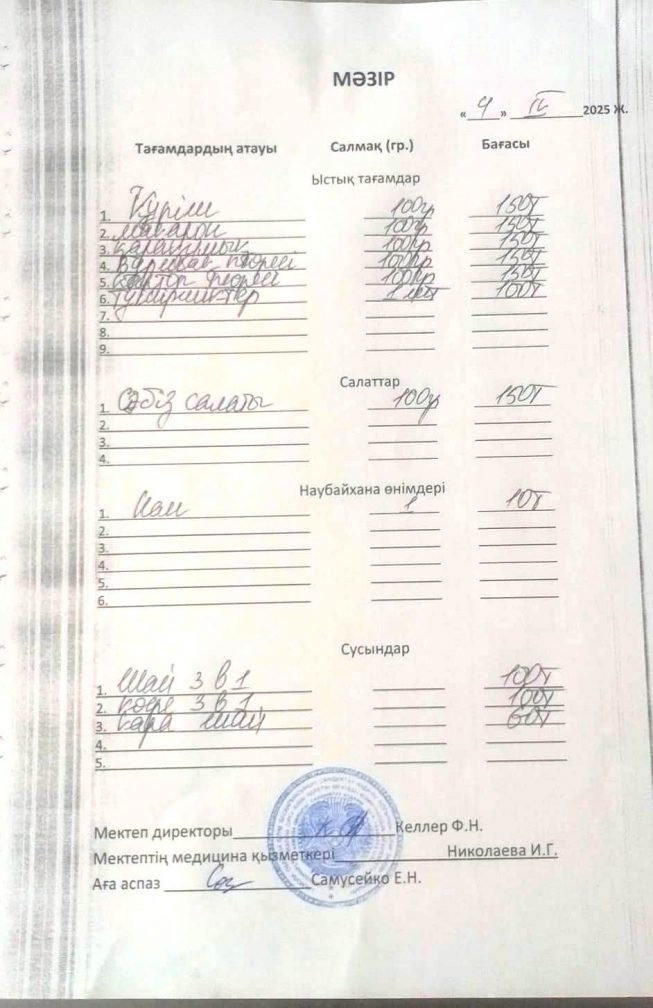 МӘЗІР
« 4 » IV 2025 Ж.
Тағамдардың атауы Салмақ (гр.) Бағасы
Ыстық тағамдар
1. Күріш 100гр 150т
2. макарон 100гр 150т
3. қарақұмық 100гр 150т
4. Бұршақ пюреси 100гр 150т
5. картоп пюреси 100гр 150т
6. 1 100т
7.
8.
9.
Салаттар
1. Сәбіз салаты 100гр 150т
2.
3.
4.
Наубайхана өнімдері
1. Нан 1 10т
2.
3.
4.
5.
6.
Сусындар
1. Шай 3 в 1 100т
2. кофе 3 в 1 100т
3. кара шай 60т
4.
5.
Мектеп директоры Келлер Ф.Н.
Мектептің медицина қызметкері Николаева И.Г.
Аға аспаз Самусейко Е.Н.